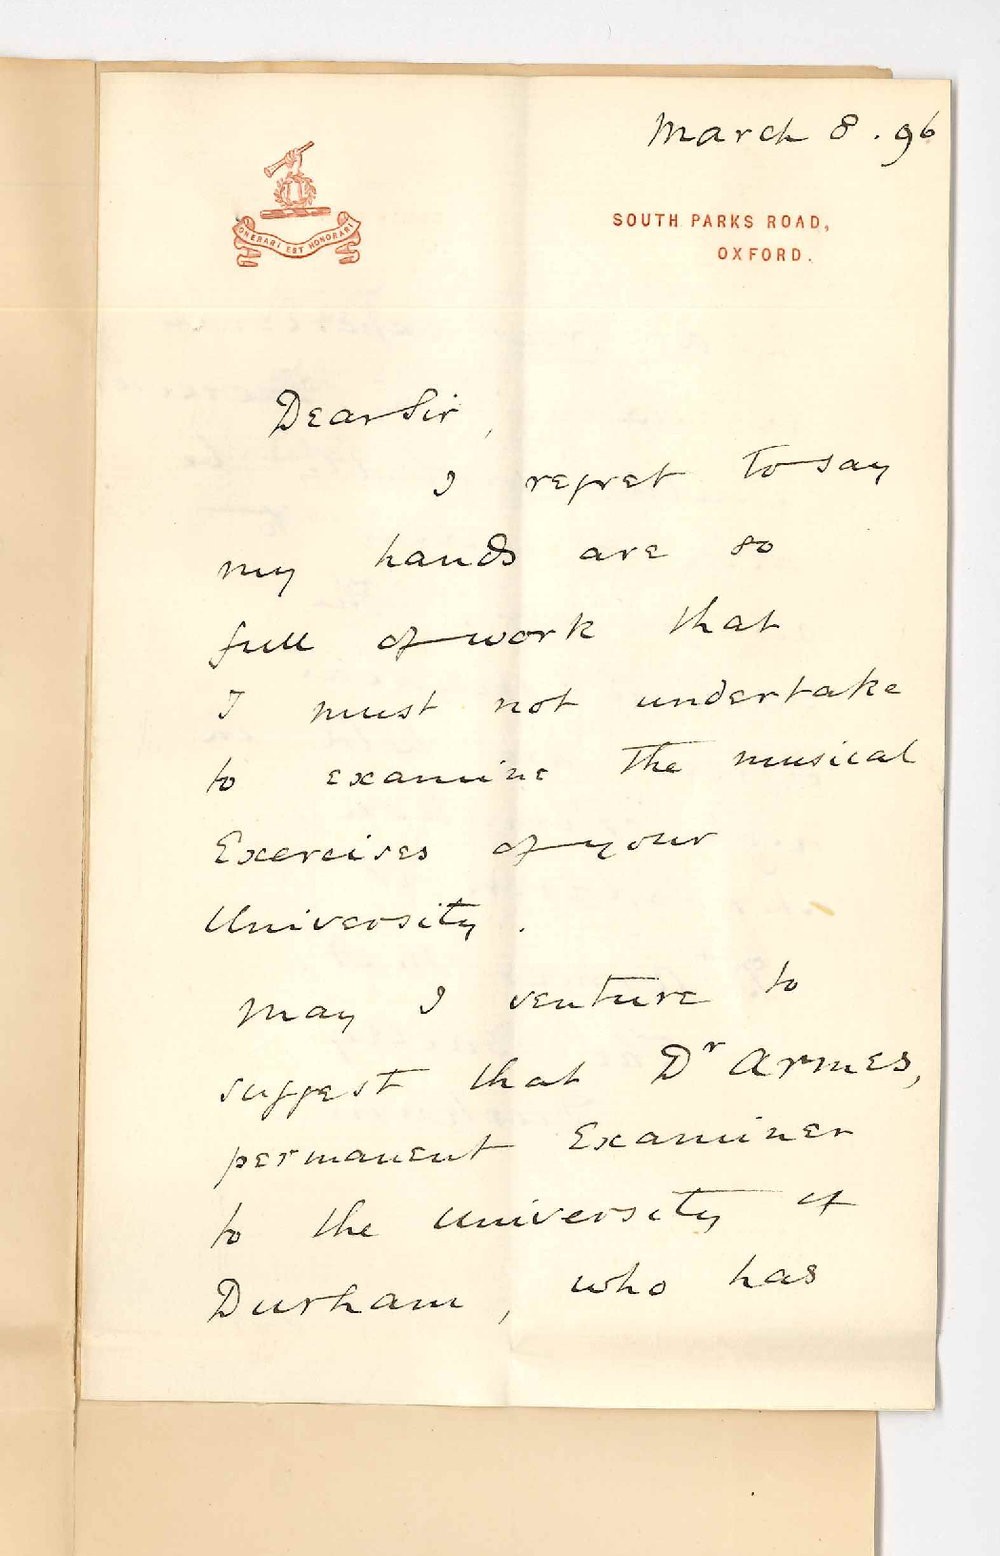 March 8. 96
ONERARI EST HONORARI
SOUTH PARKS ROAD,
OXFORD.
Dear Sir,
I regret to say
my hands are so
full of work that
I must not undertake
to examine the musical
Exercises of your
University.
May I venture to
suggest that Dr Armes,
permanent Examiner
to the University of
Durham, who has